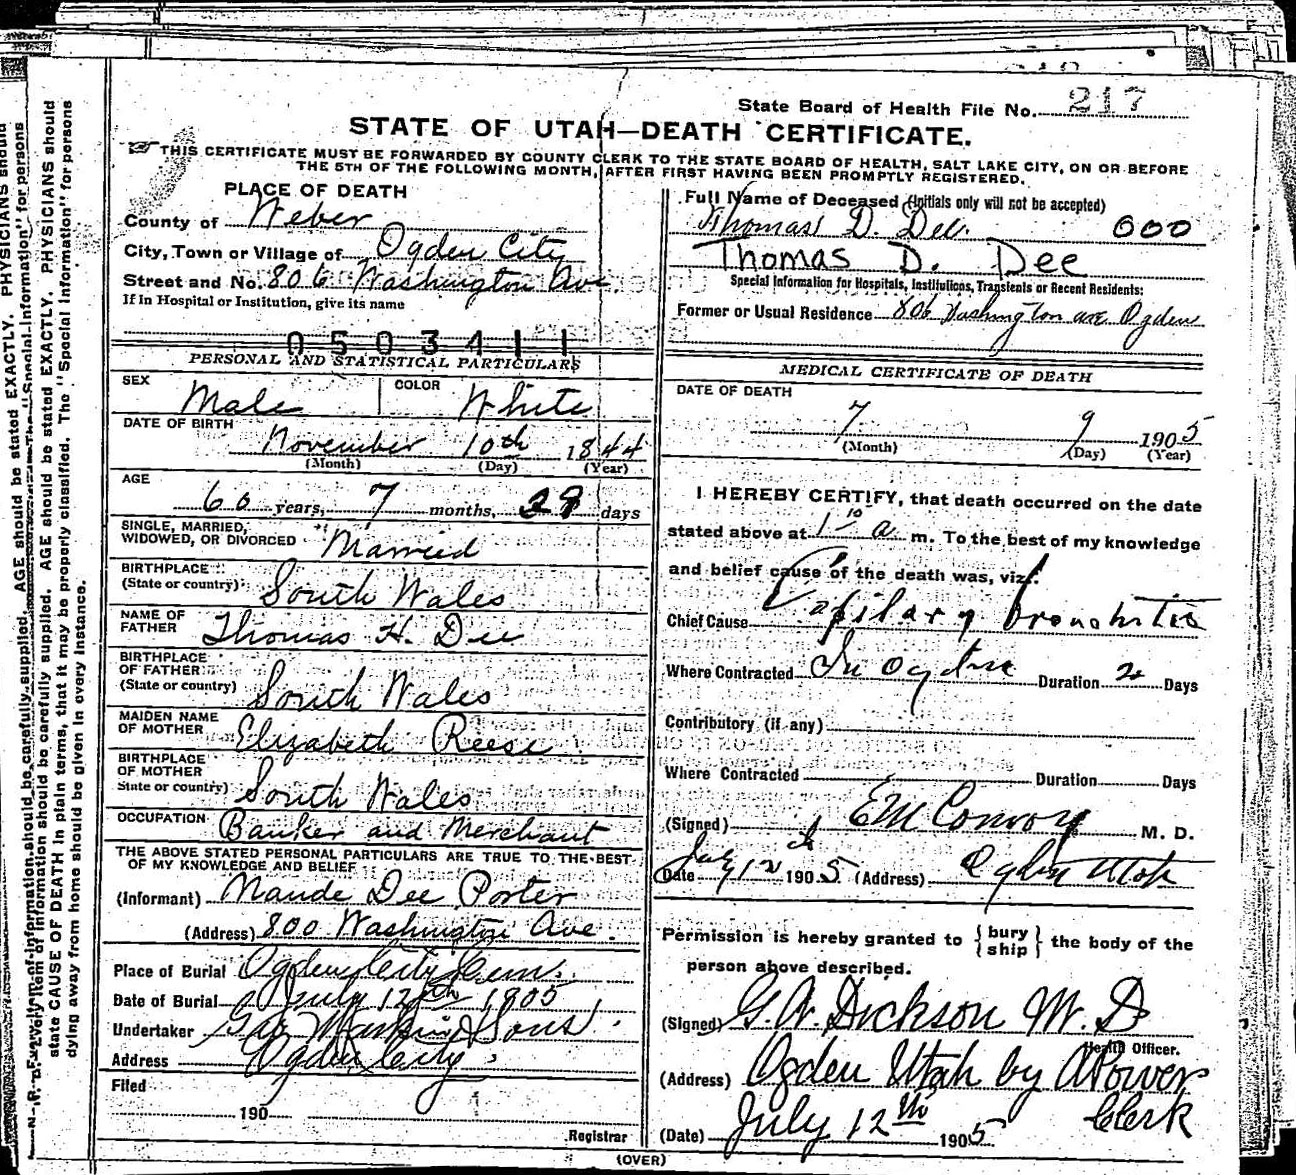 State Board of Health File No. 217
STATE OF UTAH—DEATH CERTIFICATE.
THIS CERTIFICATE MUST BE FORWARDED BY COUNTY CLERK TO THE STATE BOARD OF HEALTH, SALT LAKE CITY, ON OR BEFORE
THE 5TH OF THE FOLLOWING MONTH, AFTER FIRST HAVING BEEN PROMPTLY REGISTERED.
PLACE OF DEATH
County of Weber
City, Town or Village of Ogden City
Street and No. 806 Washington Ave.
If in Hospital or Institution, give its name
0503411
PERSONAL AND STATISTICAL PARTICULARS
SEX Male COLOR White
DATE OF BIRTH
November 10th 1844
(Month) (Day) (Year)
AGE
60 years, 7 months, 29 days
SINGLE, MARRIED,
WIDOWED, OR DIVORCED Married
BIRTHPLACE
(State or country) South Wales
NAME OF
FATHER Thomas H. Dee
BIRTHPLACE
OF FATHER
(State or country) South Wales
MAIDEN NAME
OF MOTHER Elizabeth Reese
BIRTHPLACE
OF MOTHER
State or country) South Wales
OCCUPATION Banker and Merchant
THE ABOVE STATED PERSONAL PARTICULARS ARE TRUE TO THE BEST
OF MY KNOWLEDGE AND BELIEF
(Informant) Maude Dee Porter
(Address) 800 Washington Ave.
Place of Burial Ogden City Cem.
Date of Burial July 12th 1905
Undertaker & Sons
Address Ogden City
Filed
190
Registrar
(OVER)
Full Name of Deceased (Initials only will not be accepted)
Thomas D. Dee. 600
Thomas D. Dee
Special Information for Hospitals, Institutions, Transients or Recent Residents:
Former or Usual Residence 806 Washington ave Ogden
MEDICAL CERTIFICATE OF DEATH
DATE OF DEATH
7 9 1905
(Month) (Day) (Year)
I HEREBY CERTIFY, that death occurred on the date
stated above at 1 10 a m. To the best of my knowledge
and belief cause of the death was, viz:
Chief Cause Capilary bronchitis
Where Contracted In Ogden Duration 2 Days
Contributory (if any)
Where Contracted Duration Days
(Signed) E M Conroy M. D.
Date July 12th 1905 (Address) Ogden Utah
Permission is hereby granted to { bury
ship } the body of the
person above described.
(Signed) G. W. Dickson M. D
Health Officer.
(Address) Ogden Utah by A Power
Clerk
(Date) July 12th 1905
N. B.—Every item of information should be carefully supplied. AGE should be stated EXACTLY. PHYSICIANS should
state CAUSE OF DEATH in plain terms, that it may be properly classified. The "Special Information" for persons
dying away from home should be given in every instance.